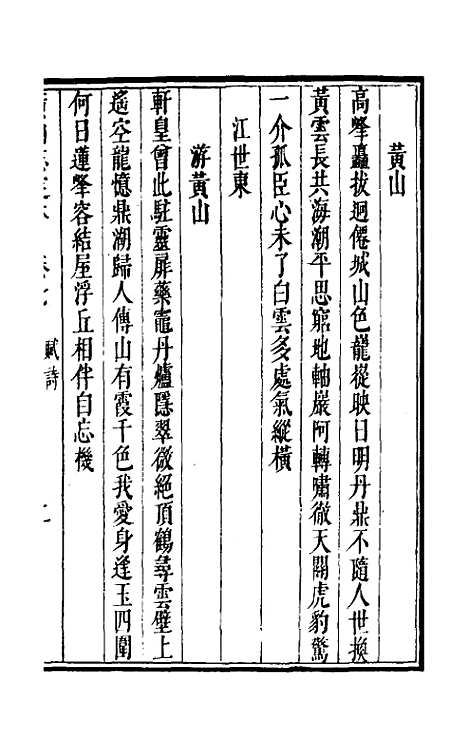 黃山
高峯矗拔迥僊城山色巃嵸映日明丹鼎不隨人世換
黃雲長共海潮平思窮地軸巖阿轉嘯徹天關虎豹驚
一介孤臣心未了白雲多處氣縱橫
江世東
游黃山
軒皇曾此駐靈扉藥竈丹爐隱翠微絕頂鶴尋雲壁上
遙空龍憶鼎湖歸人傳山有霞千色我愛身逢玉四圍
何日蓮峯容結屋浮丘相伴自忘機
賦詩